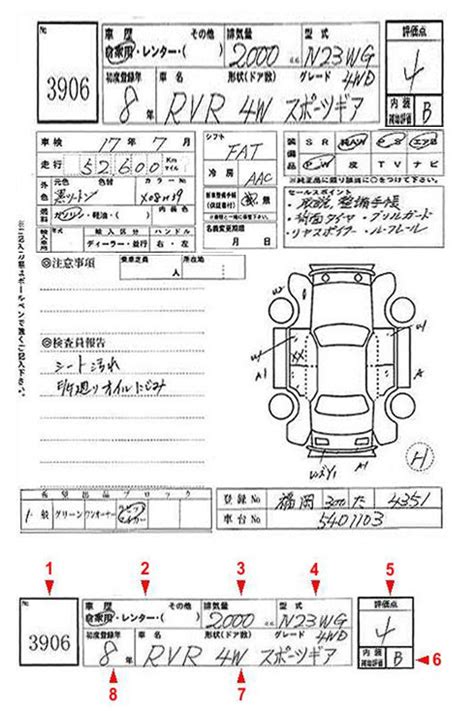 No. 車歴 その他 排気量 型式 評価点
3906 自家用・レンター・( ) 2,000 cc N23WG 4
初度登録年 車名 形状(ドア数) グレード 4WD 内装
8年 RVR 4W スポーツギア 補助評価 B
車検 17年7月 シフト FAT
走行 52,600 Km マイル 冷房 AAC
外色 元色 色替 カラーNo.
黒ツートン X08H19
燃料 ガソリン・軽油・( ) 内装色
輸入区分 ハンドル
ディーラー・並行 右・左
名義変更期限
月 日
装備品 SR AW PS エアB
PW 革 TV ナビ
※純正品に限り該当に○をつけて下さい。
セールスポイント
・取説、整備手帳
・背面タイヤ・グリルガード
・リヤスポイラー・ルーフレール
◎注意事項 乗車定員 人 所在地
◎検査員報告
シート汚れ
オイルにじみ
U
W
XX
A1
A1
A
A
H
希望出品ブロック
一般 グリーン ワンオーナー
登録No. 福岡 300 た 4351
車台No. 5401103
1 2 3 4 5
No. 車歴 その他 排気量 型式 評価点
3906 自家用・レンター・( ) 2,000 cc N23WG 4
初度登録年 車名 形状(ドア数) グレード 4WD 内装
8年 RVR 4W スポーツギア 補助評価 B 6
8 7